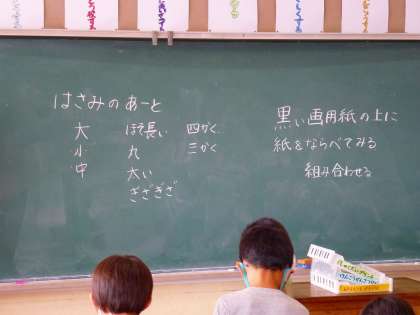 はさみのあーと
大 ほそ長い 四かく
小 丸 三かく
中 太い
ぎざぎざ
黒い画用紙の上に
紙をならべてみる
組み合わせる